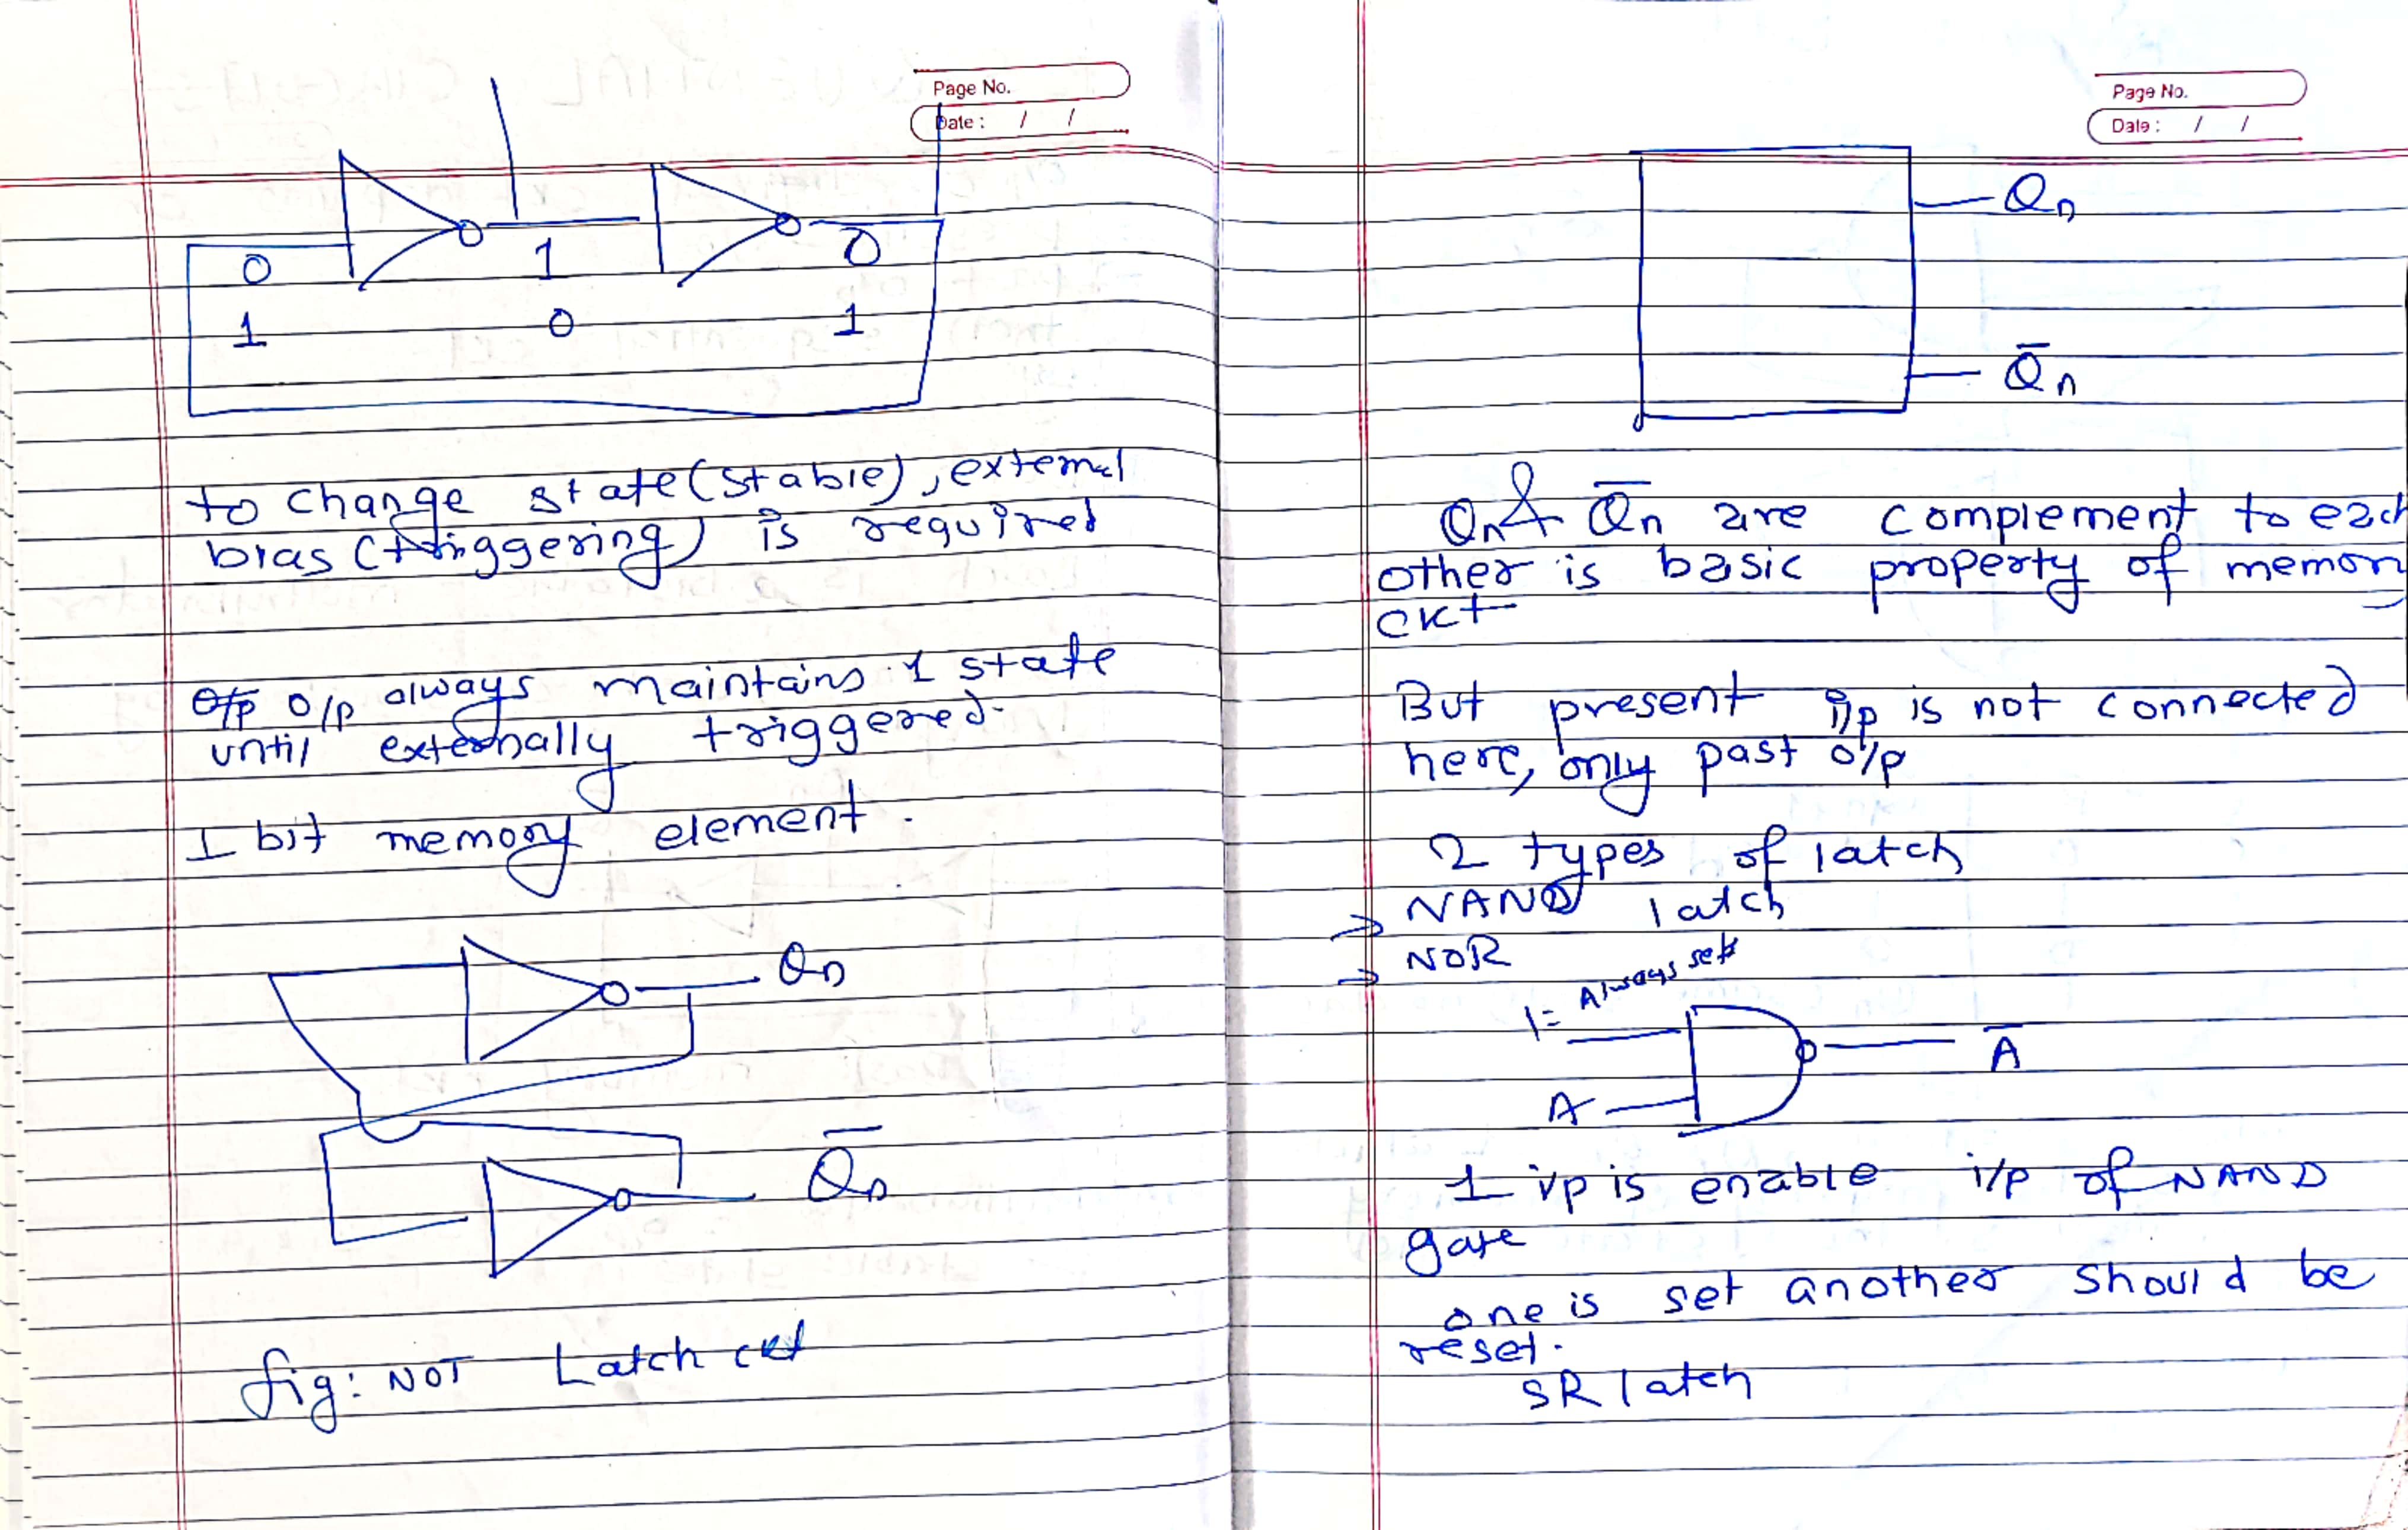 Page No.
Date : / /
0 1 0
1 0 1
to change state (stable), external
bias (triggering) is required
O/p o/p always maintains 1 state
until externally triggered.
1 bit memory element.
Qn
Q̅n
fig: NOT Latch ckt
Page No.
Date : / /
Qn
Q̅n
Qn & Q̅n are complement to each
other is basic property of memory
ckt
But present i/p is not connected
here, only past o/p
2 types of latch
→ NAND latch
→ NOR
1= Always set
A
A̅
1 i/p is enable i/p of NAND
gate
one is set another should be
reset.
SR latch